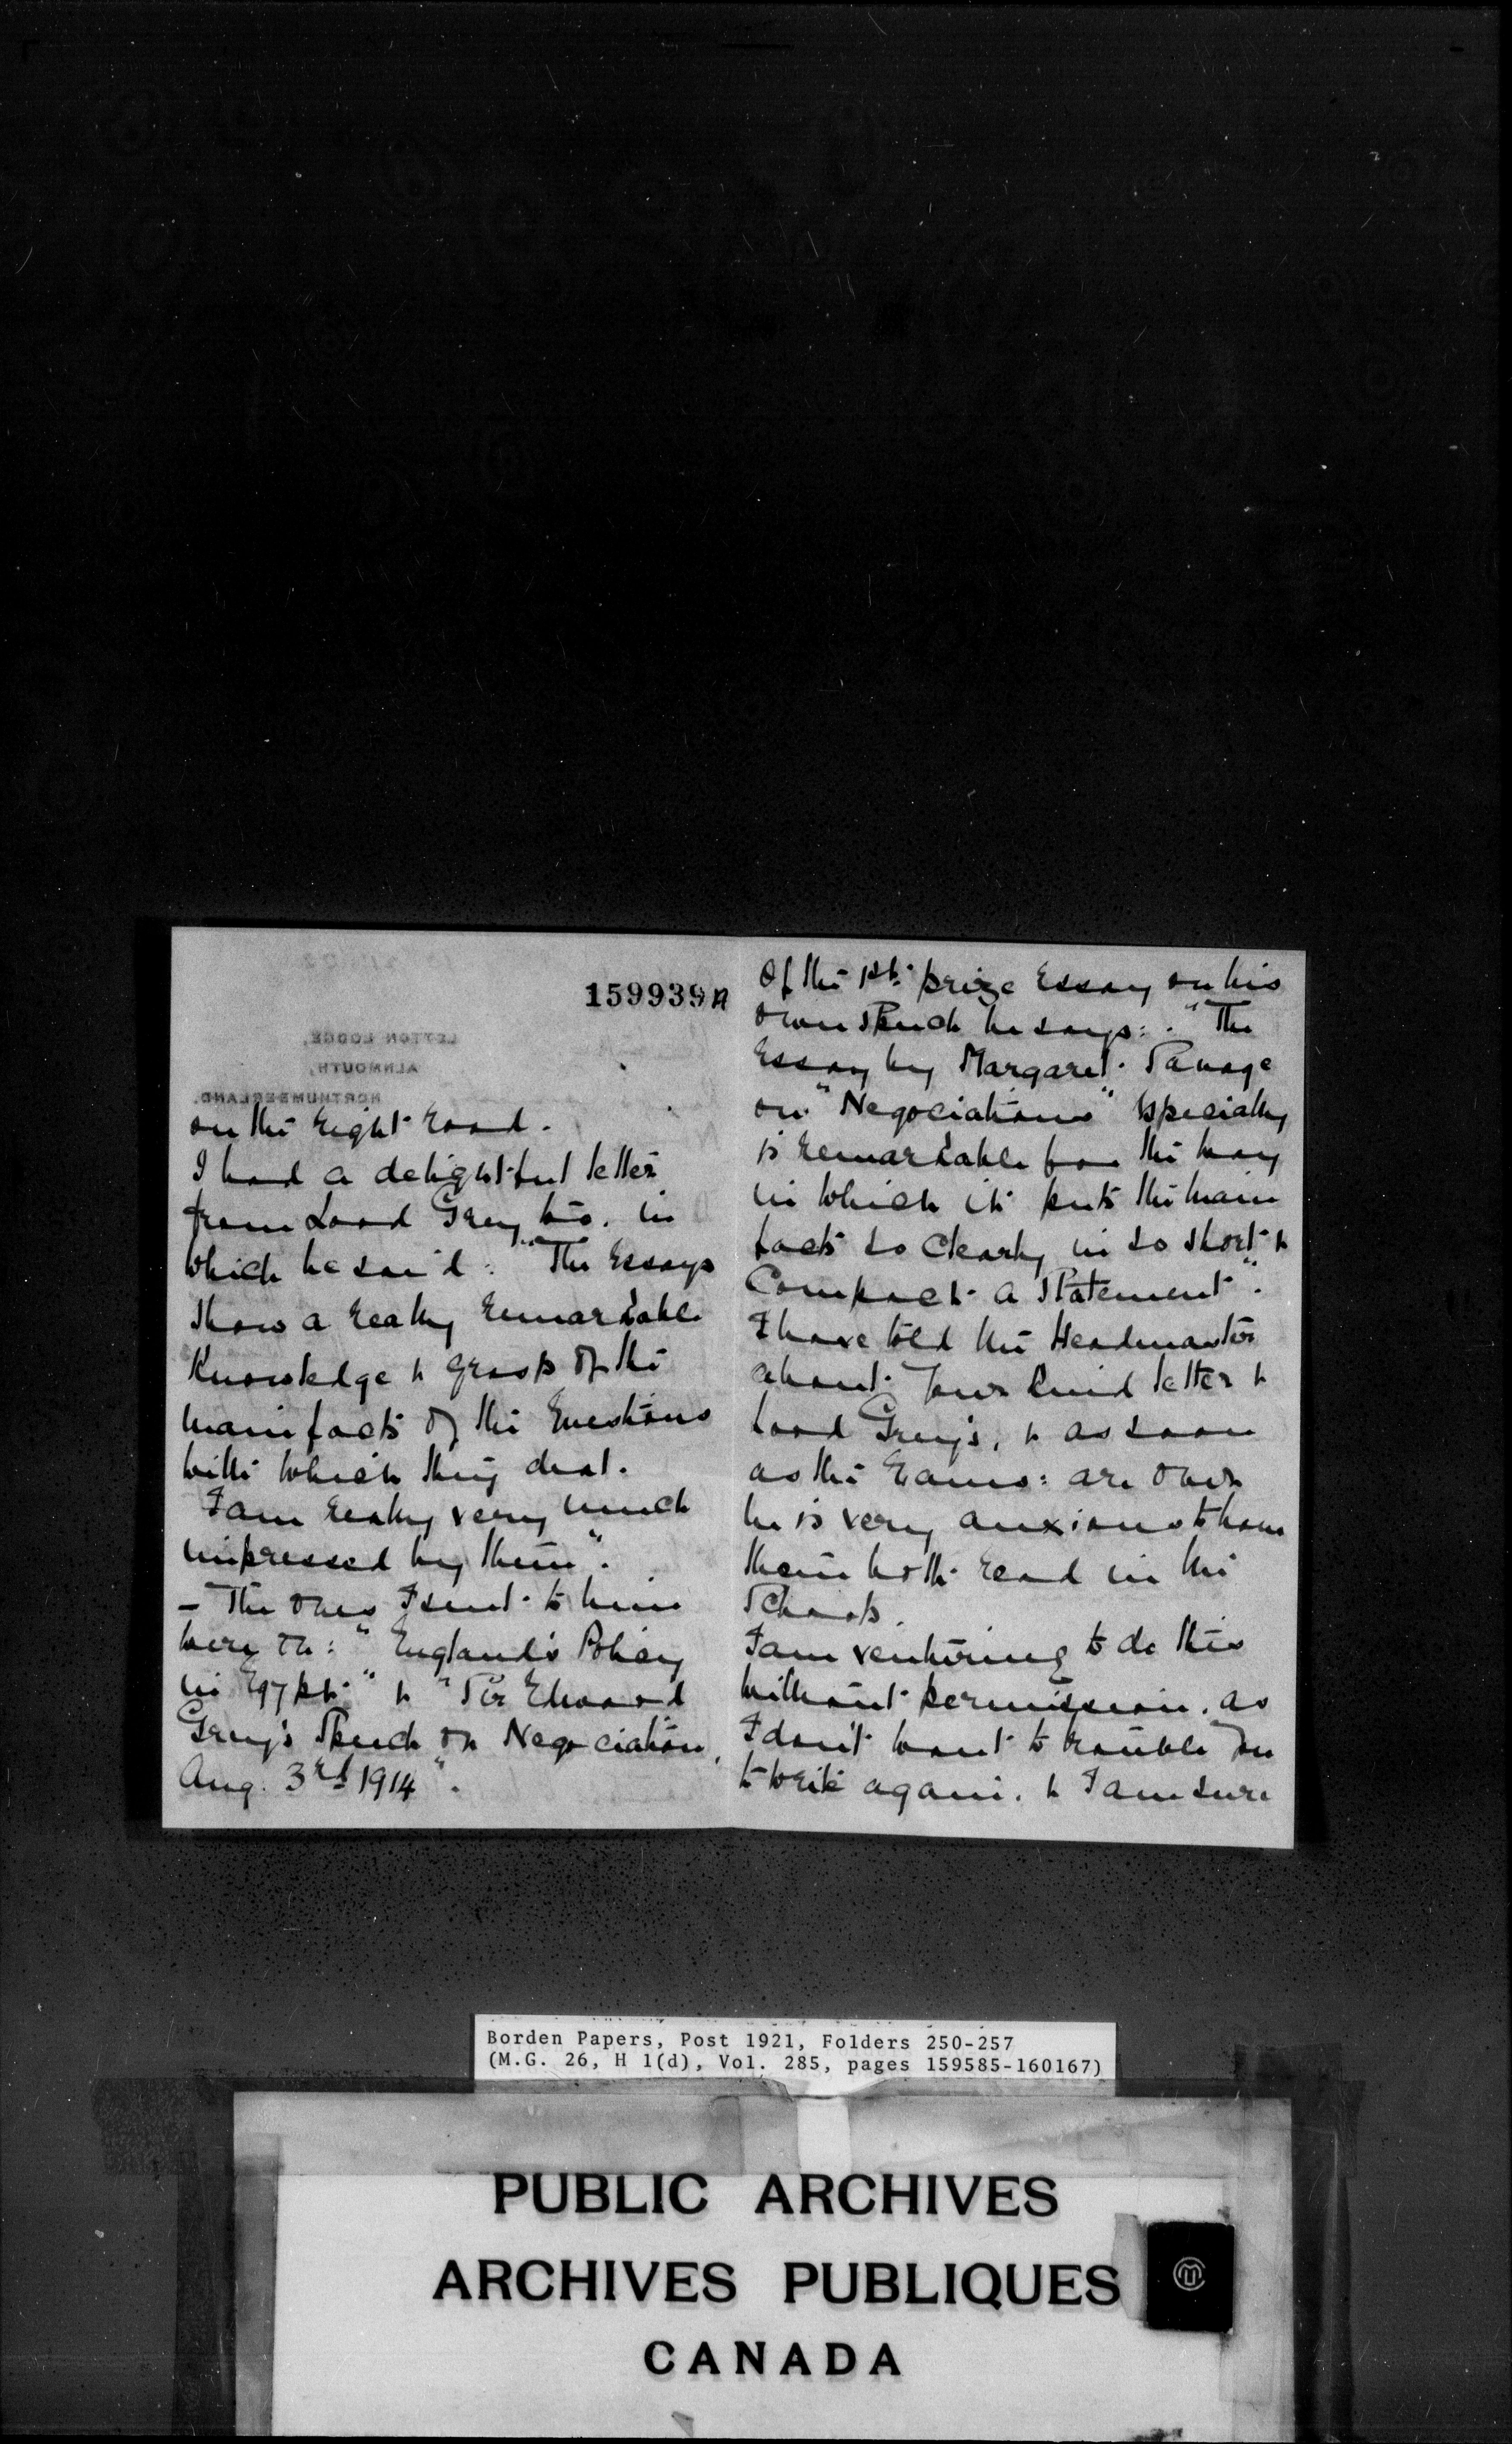 159939A
LETTON LODGE,
ALNMOUTH,
NORTHUMBERLAND.
on the right road.
I had a delightful letter
from Lord Grey too. in
which he said: "The Essays
show a really remarkable
Knowledge & grasp of the
main facts of the Questions
with which they deal.
I am really very much
impressed by them".
- The ones I sent to him
were on: "England's Policy
in Egypt" & "Sir Edward
Grey's Speech on Negociation,
Aug. 3rd 1914".
Of the 1st prize Essay on his
own Speech he says: "The
Essay by Margaret Savage
on "Negociations" especially
is remarkable for the way
in which it puts the main
facts so clearly in so short &
Compact a Statement".
I have told the Headmaster
about your kind letter &
Lord Grey's, & as soon
as the Exams: are over
he is very anxious to have
them both read in the
Schools.
I am venturing to do this
without permission, as
I don't want to trouble you
to write again. & I am sure
Borden Papers, Post 1921, Folders 250-257
(M.G. 26, H 1(d), Vol. 285, pages 159585-160167)
PUBLIC ARCHIVES
ARCHIVES PUBLIQUES
CANADA